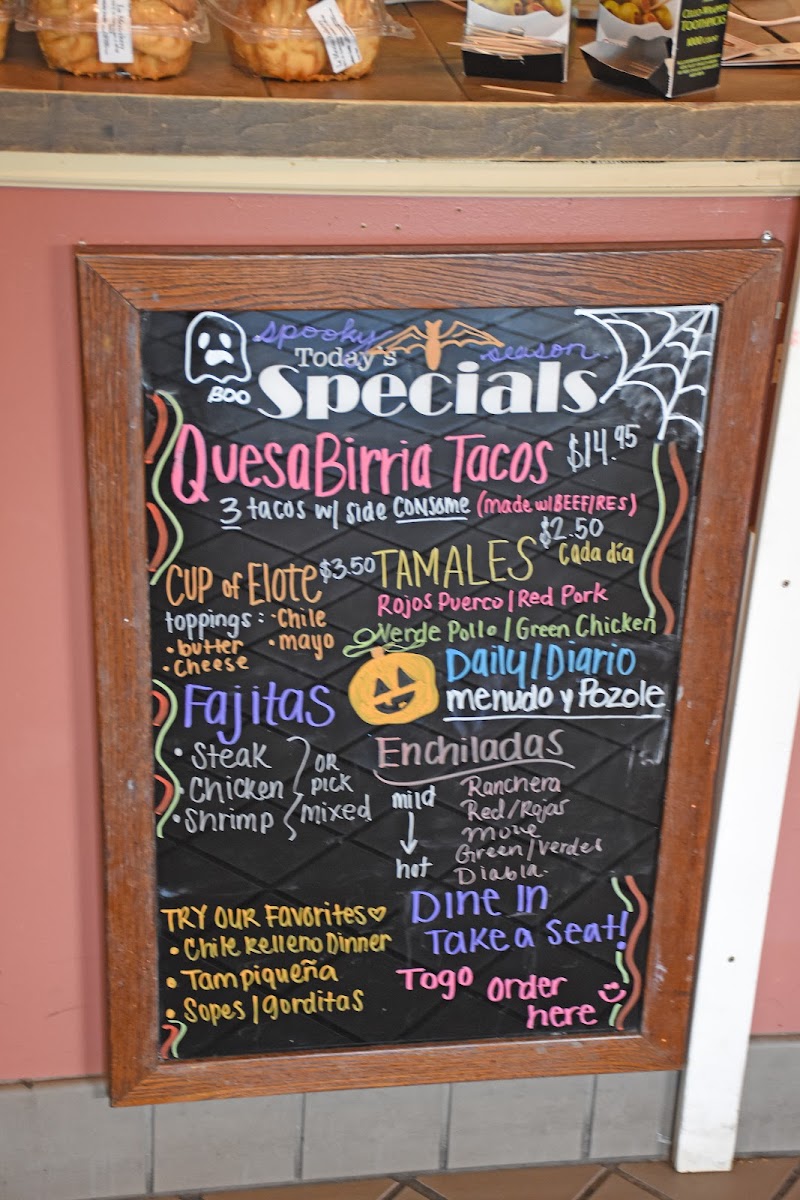 CELLO-WRAPPED
TOOTHPICKS
1000 COUNT
spooky
Today's
season
BOO
Specials
QuesaBirria Tacos $14.95
3 tacos w/ side CONSOME (made w/ BEEF/RES)
CUP of Elote $3.50
toppings: • Chile
• butter • mayo
• Cheese
TAMALES $2.50 cada día
Rojos Puerco / Red Pork
Verde Pollo / Green Chicken
Daily / Diario
menudo y Pozole
Fajitas
• Steak
• Chicken
• Shrimp
OR
PICK
mixed
Enchiladas
mild
hot
Ranchera
Red/Rojas
move
Green/Verdes
Diabla
TRY OUR Favorites
• Chile Relleno Dinner
• Tampiqueña
• Sopes / gorditas
Dine In
Take a Seat!
Togo order
here